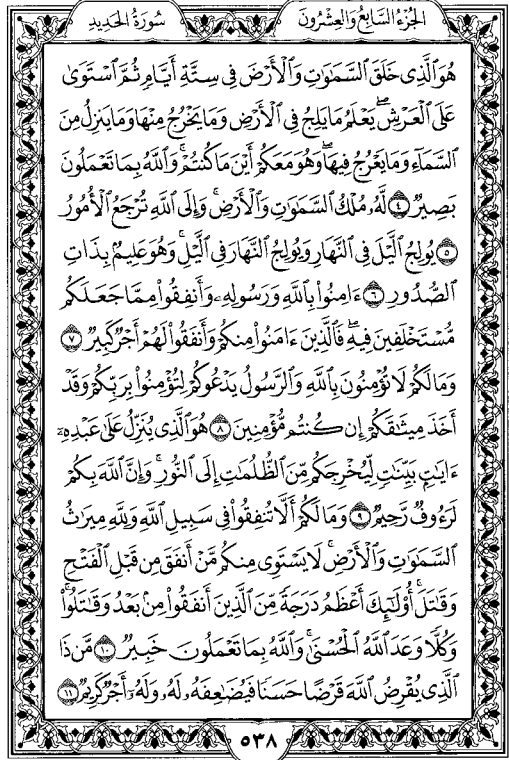 سُورَةُ الحَدِيدِ
الجُزْءُ السَّابِعُ وَالعِشْرُونَ
هُوَ ٱلَّذِى خَلَقَ ٱلسَّمَٰوَٰتِ وَٱلْأَرْضَ فِى سِتَّةِ أَيَّامٍ ثُمَّ ٱسْتَوَىٰ
عَلَى ٱلْعَرْشِ ۖ يَعْلَمُ مَا يَلِجُ فِى ٱلْأَرْضِ وَمَا يَخْرُجُ مِنْهَا وَمَا يَنزِلُ مِنَ
ٱلسَّمَآءِ وَمَا يَعْرُجُ فِيهَا ۖ وَهُوَ مَعَكُمْ أَيْنَ مَا كُنتُمْ ۚ وَٱللَّهُ بِمَا تَعْمَلُونَ
بَصِيرٌ ٤ لَّهُۥ مُلْكُ ٱلسَّمَٰوَٰتِ وَٱلْأَرْضِ ۚ وَإِلَى ٱللَّهِ تُرْجَعُ ٱلْأُمُورُ
٥ يُولِجُ ٱلَّيْلَ فِى ٱلنَّهَارِ وَيُولِجُ ٱلنَّهَارَ فِى ٱلَّيْلِ ۚ وَهُوَ عَلِيمٌۢ بِذَاتِ
ٱلصُّدُورِ ٦ ءَامِنُوا۟ بِٱللَّهِ وَرَسُولِهِۦ وَأَنفِقُوا۟ مِمَّا جَعَلَكُم
مُّسْتَخْلَفِينَ فِيهِ ۖ فَٱلَّذِينَ ءَامَنُوا۟ مِنكُمْ وَأَنفَقُوا۟ لَهُمْ أَجْرٌ كَبِيرٌ ٧
وَمَا لَكُمْ لَا تُؤْمِنُونَ بِٱللَّهِ وَٱلرَّسُولُ يَدْعُوكُمْ لِتُؤْمِنُوا۟ بِرَبِّكُمْ وَقَدْ
أَخَذَ مِيثَٰقَكُمْ إِن كُنتُم مُّؤْمِنِينَ ٨ هُوَ ٱلَّذِى يُنَزِّلُ عَلَىٰ عَبْدِهِۦٓ
ءَايَٰتٍۭ بَيِّنَٰتٍ لِّيُخْرِجَكُم مِّنَ ٱلظُّلُمَٰتِ إِلَى ٱلنُّورِ ۚ وَإِنَّ ٱللَّهَ بِكُمْ
لَرَءُوفٌ رَّحِيمٌ ٩ وَمَا لَكُمْ أَلَّا تُنفِقُوا۟ فِى سَبِيلِ ٱللَّهِ وَلِلَّهِ مِيرَٰثُ
ٱلسَّمَٰوَٰتِ وَٱلْأَرْضِ ۚ لَا يَسْتَوِى مِنكُم مَّنْ أَنفَقَ مِن قَبْلِ ٱلْفَتْحِ
وَقَٰتَلَ ۚ أُو۟لَٰٓئِكَ أَعْظَمُ دَرَجَةً مِّنَ ٱلَّذِينَ أَنفَقُوا۟ مِنۢ بَعْدُ وَقَٰتَلُوا۟ ۚ
وَكُلًّا وَعَدَ ٱللَّهُ ٱلْحُسْنَىٰ ۚ وَٱللَّهُ بِمَا تَعْمَلُونَ خَبِيرٌ ١٠ مَّن ذَا
ٱلَّذِى يُقْرِضُ ٱللَّهَ قَرْضًا حَسَنًا فَيُضَٰعِفَهُۥ لَهُۥ وَلَهُۥٓ أَجْرٌ كَرِيمٌ ١١
٥٣٨